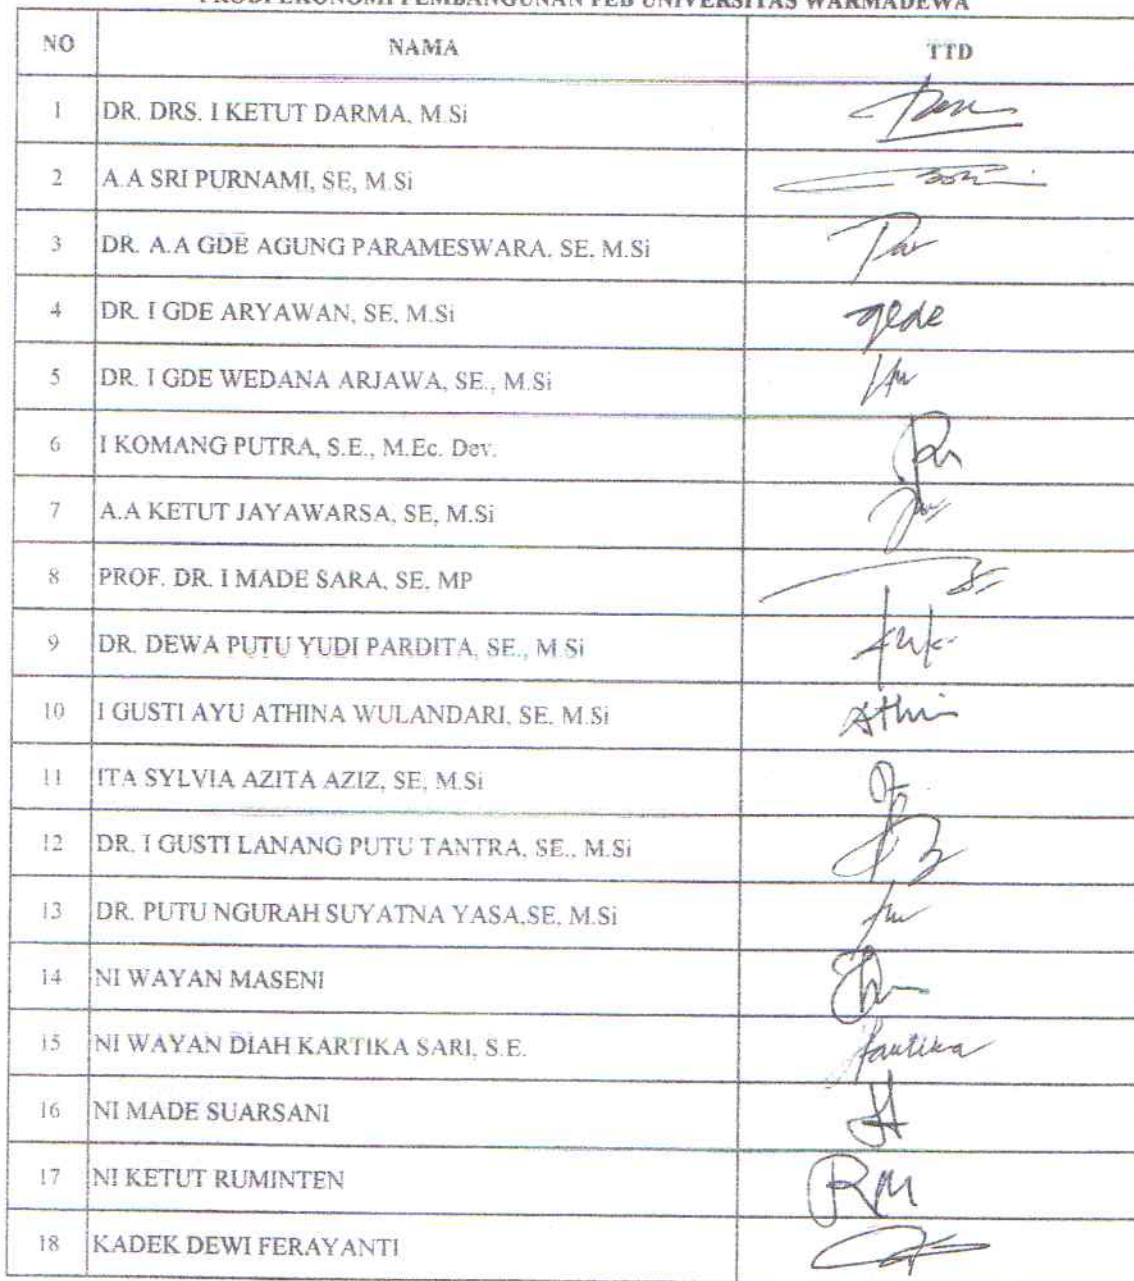 PRODI EKONOMI PEMBANGUNAN FEB UNIVERSITAS WARMADEWA
NO NAMA TTD
1 DR. DRS. I KETUT DARMA, M.Si
2 A.A SRI PURNAMI, SE, M.Si
3 DR. A.A GDE AGUNG PARAMESWARA. SE. M.Si
4 DR. I GDE ARYAWAN, SE, M.Si gede
5 DR. I GDE WEDANA ARJAWA, SE., M.Si
6 I KOMANG PUTRA, S.E., M.Ec. Dev.
7 A.A KETUT JAYAWARSA, SE, M.Si
8 PROF. DR. I MADE SARA, SE. MP
9 DR. DEWA PUTU YUDI PARDITA, SE., M.Si
10 I GUSTI AYU ATHINA WULANDARI, SE. M.Si Athin
11 ITA SYLVIA AZITA AZIZ, SE, M.Si
12 DR. I GUSTI LANANG PUTU TANTRA, SE., M.Si
13 DR. PUTU NGURAH SUYATNA YASA,SE, M.Si
14 NI WAYAN MASENI
15 NI WAYAN DIAH KARTIKA SARI, S.E.
16 NI MADE SUARSANI
17 NI KETUT RUMINTEN RM
18 KADEK DEWI FERAYANTI